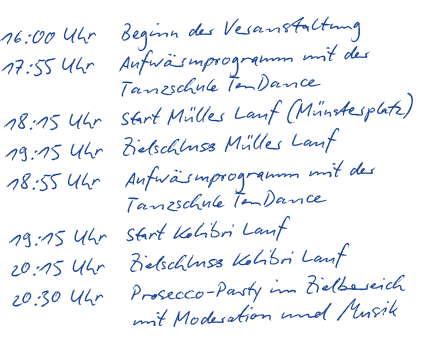 16:00 Uhr Beginn der Veranstaltung
17:55 Uhr Aufwärmprogramm mit der
Tanzschule TenDance
18:15 Uhr Start Müller Lauf (Münsterplatz)
19:15 Uhr Zielschluss Müller Lauf
18:55 Uhr Aufwärmprogramm mit der
Tanzschule TenDance
19:15 Uhr Start Kolibri Lauf
20:15 Uhr Zielschluss Kolibri Lauf
20:30 Uhr Prosecco-Party im Zielbereich
mit Moderation und Musik